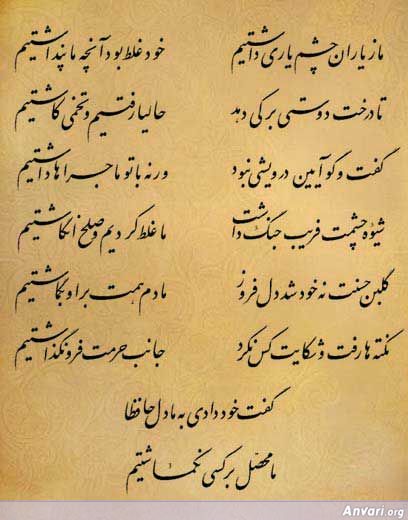 ما ز یاران چشم یاری داشتیم خود غلط بود آنچه ما پنداشتیم
تا درخت دوستی بر کی دهد حالیا رفتیم و تخمی کاشتیم
گفت و گو آیین درویشی نبود ورنه با تو ماجراها داشتیم
شیوهٔ چشمت فریب جنگ داشت ما غلط کردیم و صلح انگاشتیم
گلبن حسنت نه خود شد دل فروز ما دم همت بر او بگماشتیم
نکته ها رفت و شکایت کس نکرد جانب حرمت فرو نگذاشتیم
گفت خود دادی به ما دل حافظا
ما محصل بر کسی نگماشتیم
Anvari.org